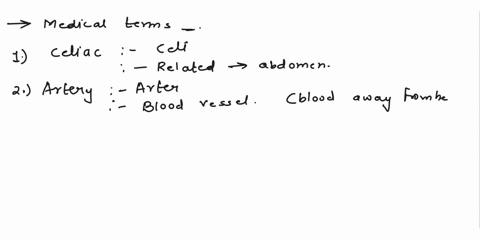 → Medical terms -.
1:) Celiac :- Celi
:- Related → abdomen.
2.) Artery :- Arter
:- Blood vessel. Cblood away Fombe